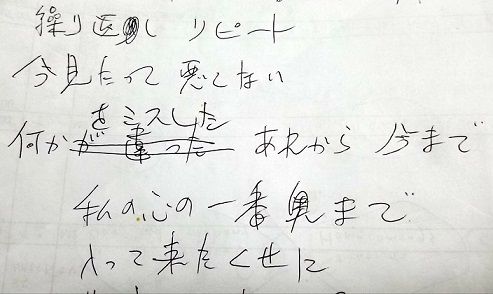 繰り返し リピート
今見たって 悪くない
をミスした
何かが違った あれから 今まで
私の心の一番奥まで
入って来たくせに